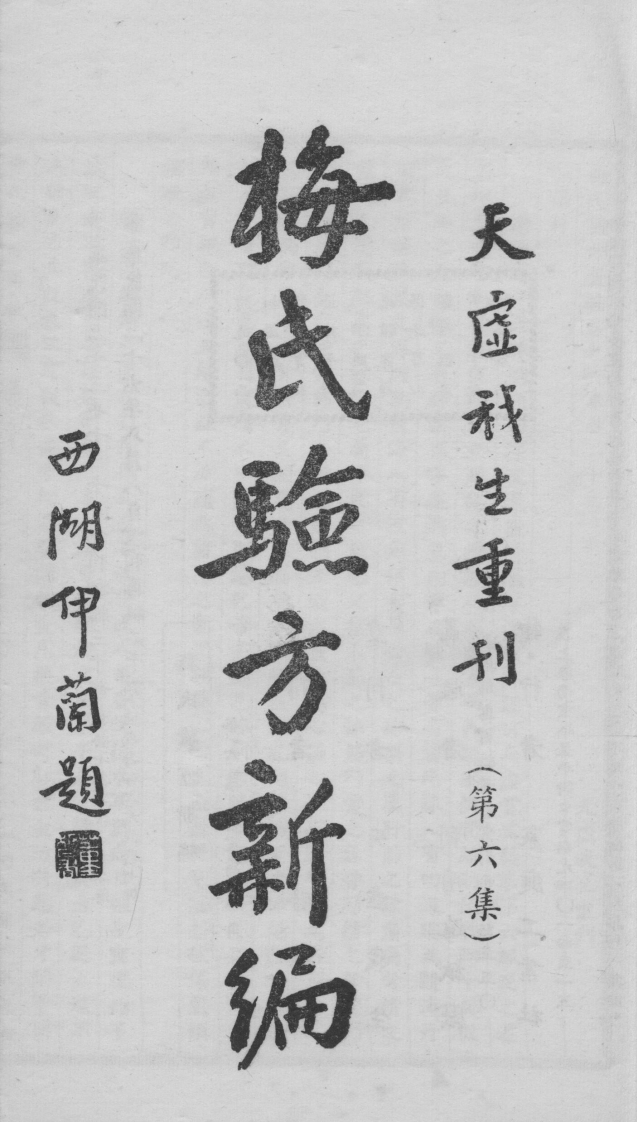 天虛我生重刊
(第六集)
梅氏驗方新編
西湖伊蘭題